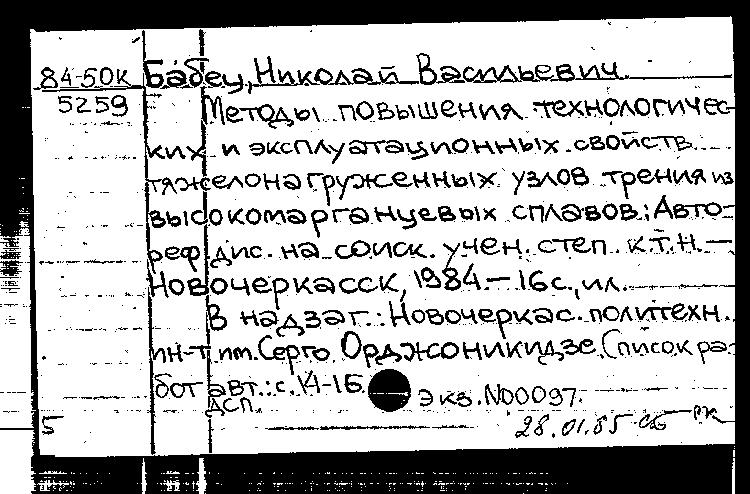 84-50к Бабец, Николай Васильевич
5259 Методы повышения технологичес-
ких и эксплуатационных свойств
тяжелонагруженных узлов трения из
высокомарганцевых сплавов: Авто-
реф дис. на соиск. учен. степ. к.т.н. —
Новочеркасск, 1984. — 16с., ил.
В надзаг.: Новочеркас. политехн.
ин-т им. Серго Орджоникидзе. Список ра-
бот авт.: с. 14-16 Экз. N00097.
ДСП.
5 28.01.85